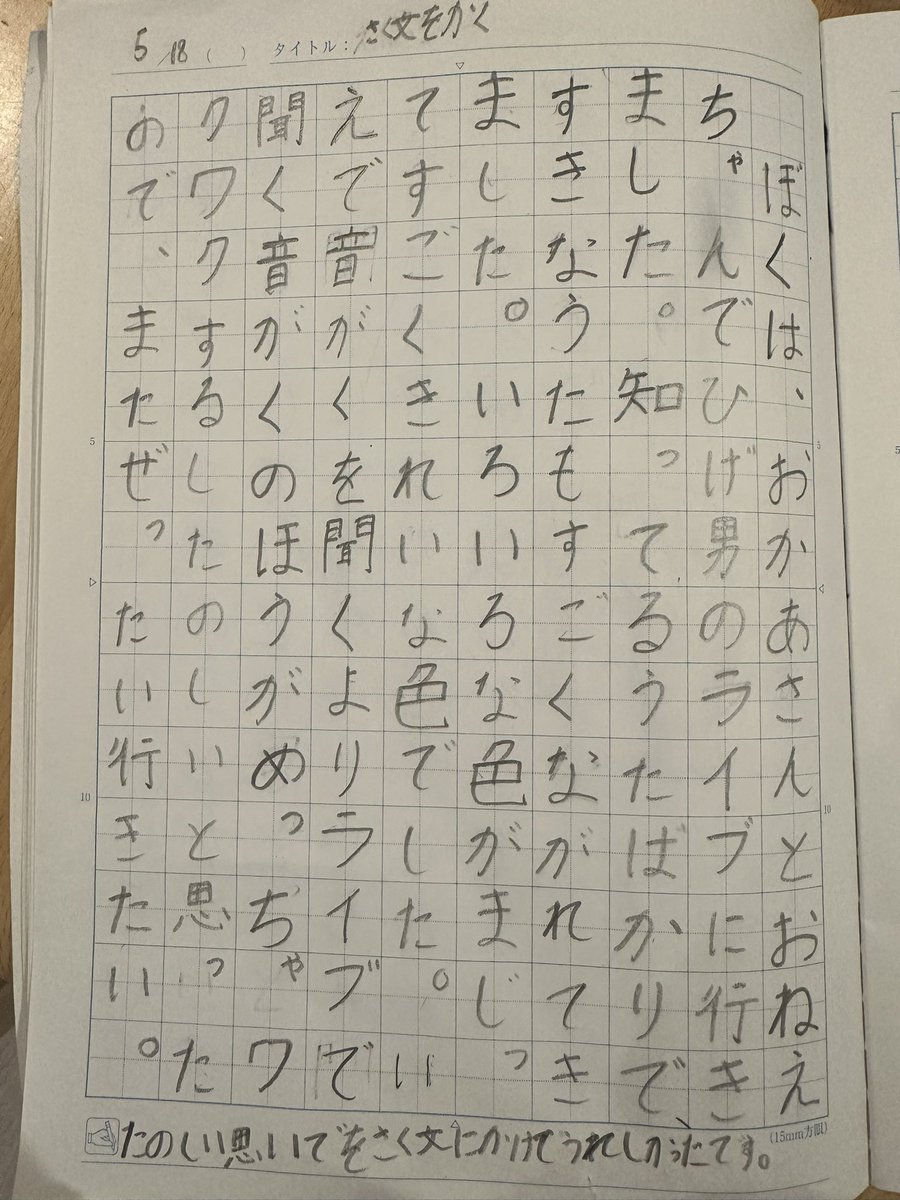 5/18（ ） タイトル：さく文をかく
ぼくは、おかあさんとおねえ
ちゃんでひげ男のライブに行き
ました。知ってるうたばかりで、
すきなうたもすごくながれてき
ました。いろいろな色がまじっ
てすごくきれいな色でした。い
えで音がくを聞くよりライブで
聞く音がくのほうがめっぢゃワ
クワクするしたのしいと思った
ので、またぜったい行きたい。
5
10
5
10
(15mm方眼)
たのしい思いでをさく文にかけてうれしかったです。